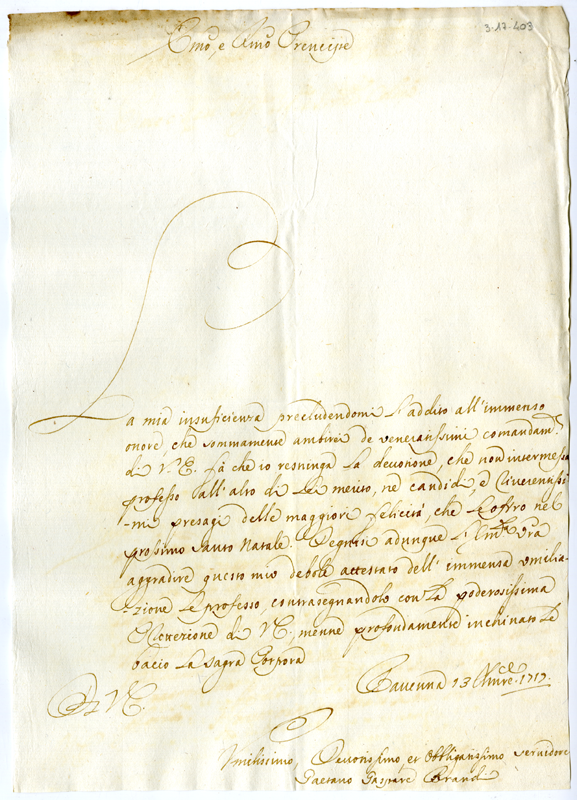 3-17-403
Emo, e Rmo Prencipe
La mia insuficienza precludendomi l'addito all'immenso
onore, che sommamente ambirei de veneratissimi comandam.ti
di V.E. fà che io restringa la devotione, che non intermessa
professo all'alto di Lei merito, ne candidi, e riverentissi-
-mi presagi delle maggiori felicità, che Le offro nel
prossimo Santo Natale. Degnisi adunque l'Em.za Vra
aggradire questo mio debole attestato dell'immensa umilia-
-zione Le professo contrasegnandolo con la poderosissima
Protezione di V.E., mentre profondamente inchinato Le
bacio la sagra Porpora
Di V.E.
Ravenna 13 Xmbre. 1717.
Umilissimo, Devotissimo, et Obbligatissimo Servidore
Gaetano Gaspare